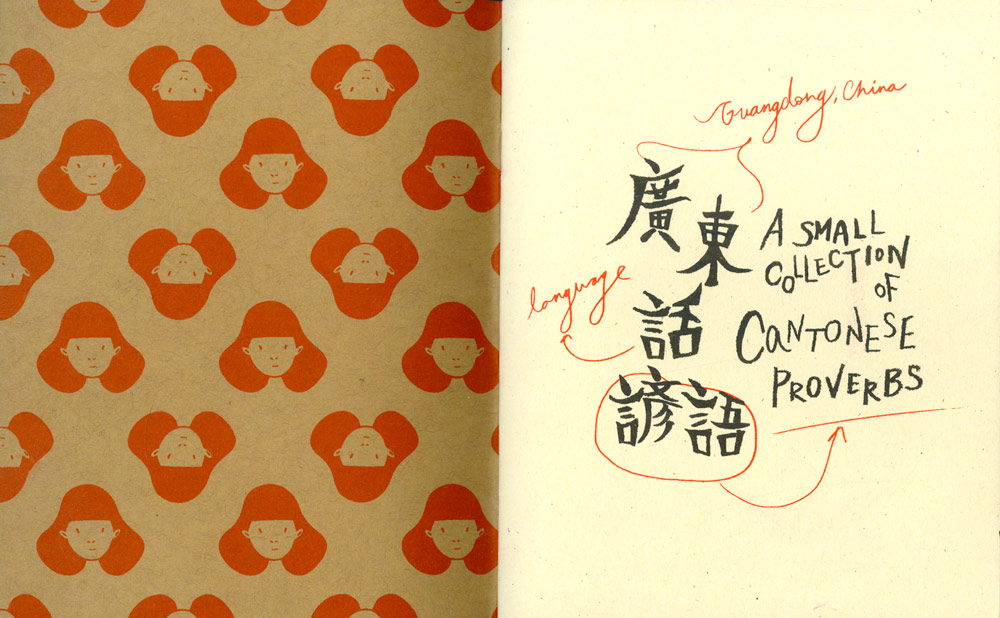 Guangdong, China
廣東
話
諺語
language
A SMALL
COLLECTION
OF
CANTONESE
PROVERBS